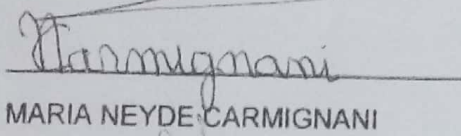 Carmignani
MARIA NEYDE CARMIGNANI